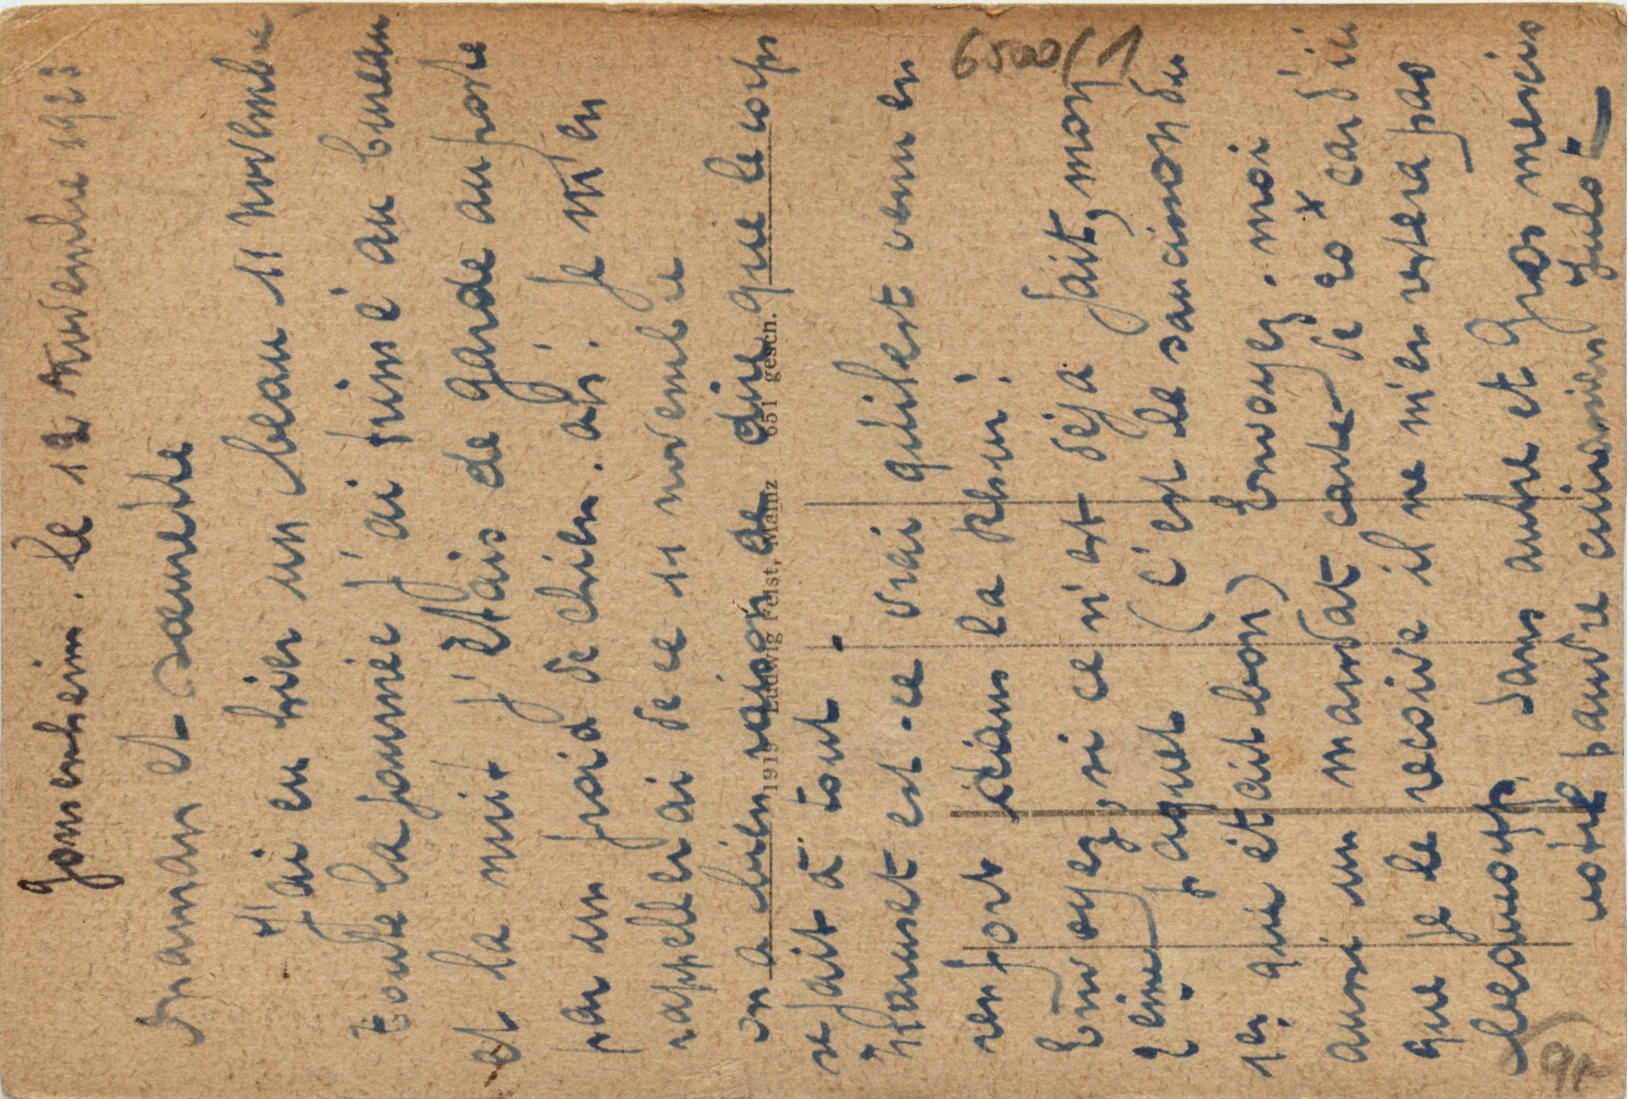 Gonsenheim. le 12 Novembre 1923
Maman et sœurette
J'ai eu hier un beau 11 novembre
Toute la journée j'ai trimé au bureau
et la nuit j'étais de garde au poste
par un froid de chien. ah! je m'en
rappellerai de ce 11 novembre
on a bien raison de dire que le corps
se fait à tout.
Maruset est-ce vrai qu'il est venu en
renfort dans la Rhur?
Envoyez, si ce n'est déjà fait, mon
2eime paquet (c'est le saucisson du
1er qui était bon) Envoyez-moi
aussi un mandat carte de 20 car d'ici
que je le reçoive il ne m'en restera pas
beaucoup. Sans autre et Gros mercis
votre pauvre cuirassier Julot
1919 Ludwig Feist, Mainz 651 gesch.
6500/1